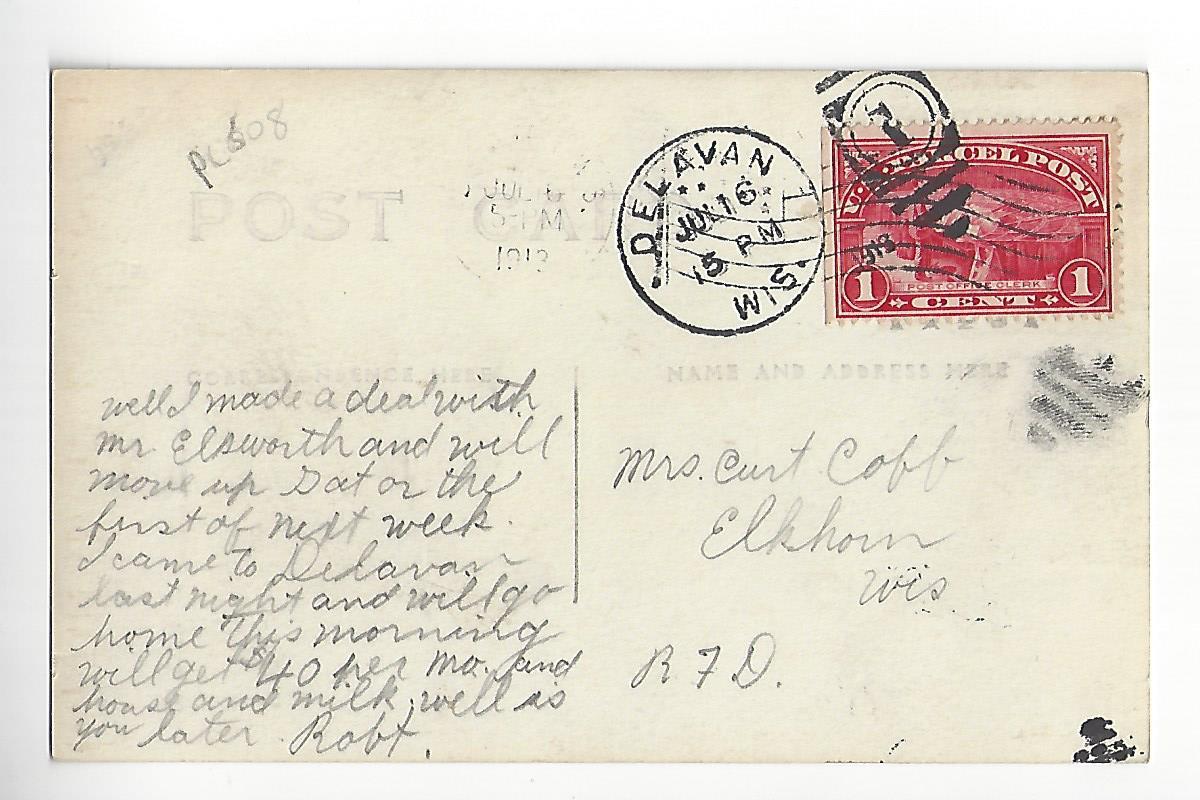 PC 608
POST CARD
JUL 16
5 PM
1913
DELAVAN
JUL 16
5 PM
WIS.
1913
1
U.S. PARCEL POST
POST OFFICE CLERK
1 CENT 1
CORRESPONDENCE HERE
NAME AND ADDRESS HERE
well I made a deal with
mr. Elsworth and will
move up Sat or the
first of next week.
I came to Delavan
last night and will go
home this morning
will get $40 per mo. and
house and milk, well is
you later Robt.
Mrs. Curt Cobb
Elkhorn
Wis
R F D.